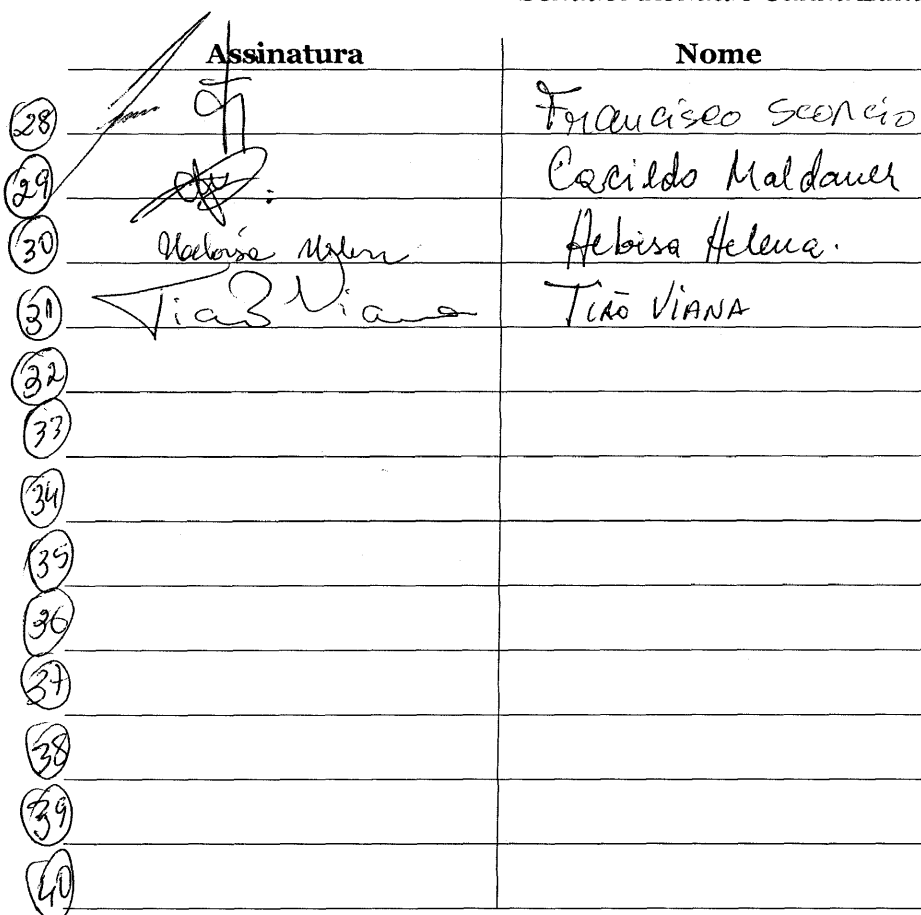 Assinatura Nome
28 Francisco Scorcio
29 Casildo Maldaner
30 Heloisa Helena Heloisa Helena.
31 Tião Viana TIÃO VIANA
32
33
34
35
36
37
38
39
40